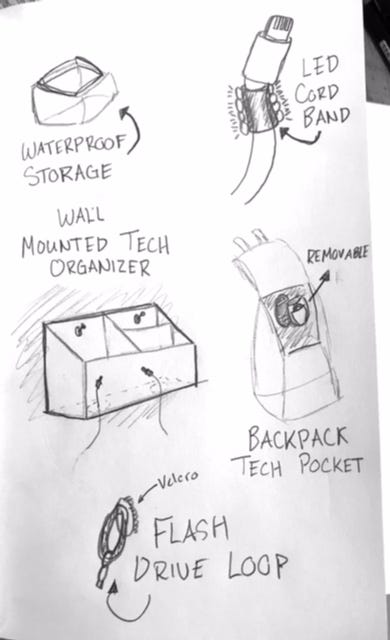 WATERPROOF
STORAGE
LED
CORD
BAND
WALL
MOUNTED TECH
ORGANIZER
REMOVABLE
BACKPACK
TECH POCKET
Velcro
FLASH
DRIVE LOOP